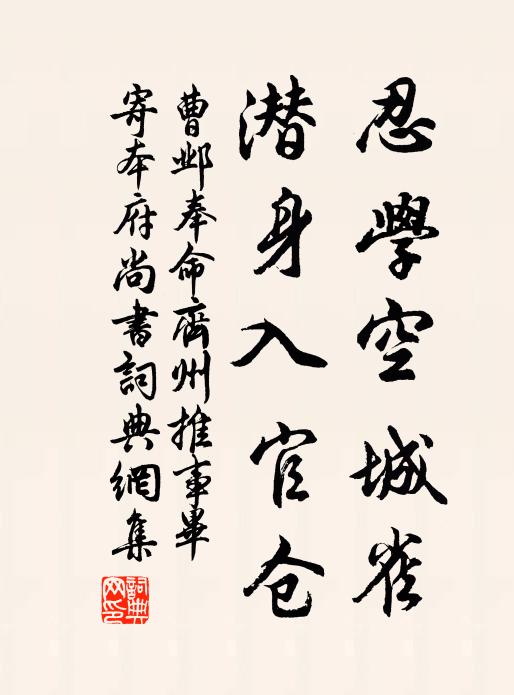 忍學空城雀
潜身入官仓
曹邺奉命齊州推事畢
寄本府尚書詞典網集
詞典
网印